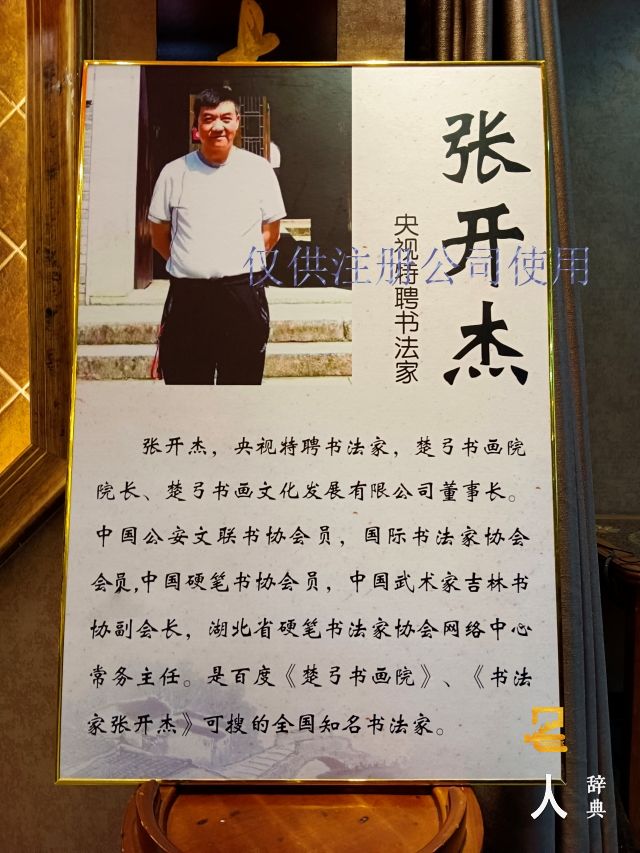 张开杰
央视特聘书法家
仅供注册公司使用
张开杰，央视特聘书法家，楚弓书画院
院长、楚弓书画文化发展有限公司董事长。
中国公安文联书协会员，国际书法家协会
会员,中国硬笔书协会员，中国武术家吉林书
协副会长，湖北省硬笔书法家协会网络中心
常务主任。是百度《楚弓书画院》、《书法
家张开杰》可搜的全国知名书法家。
名
人
辞典